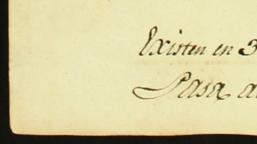 Existen en 3
Pasa a